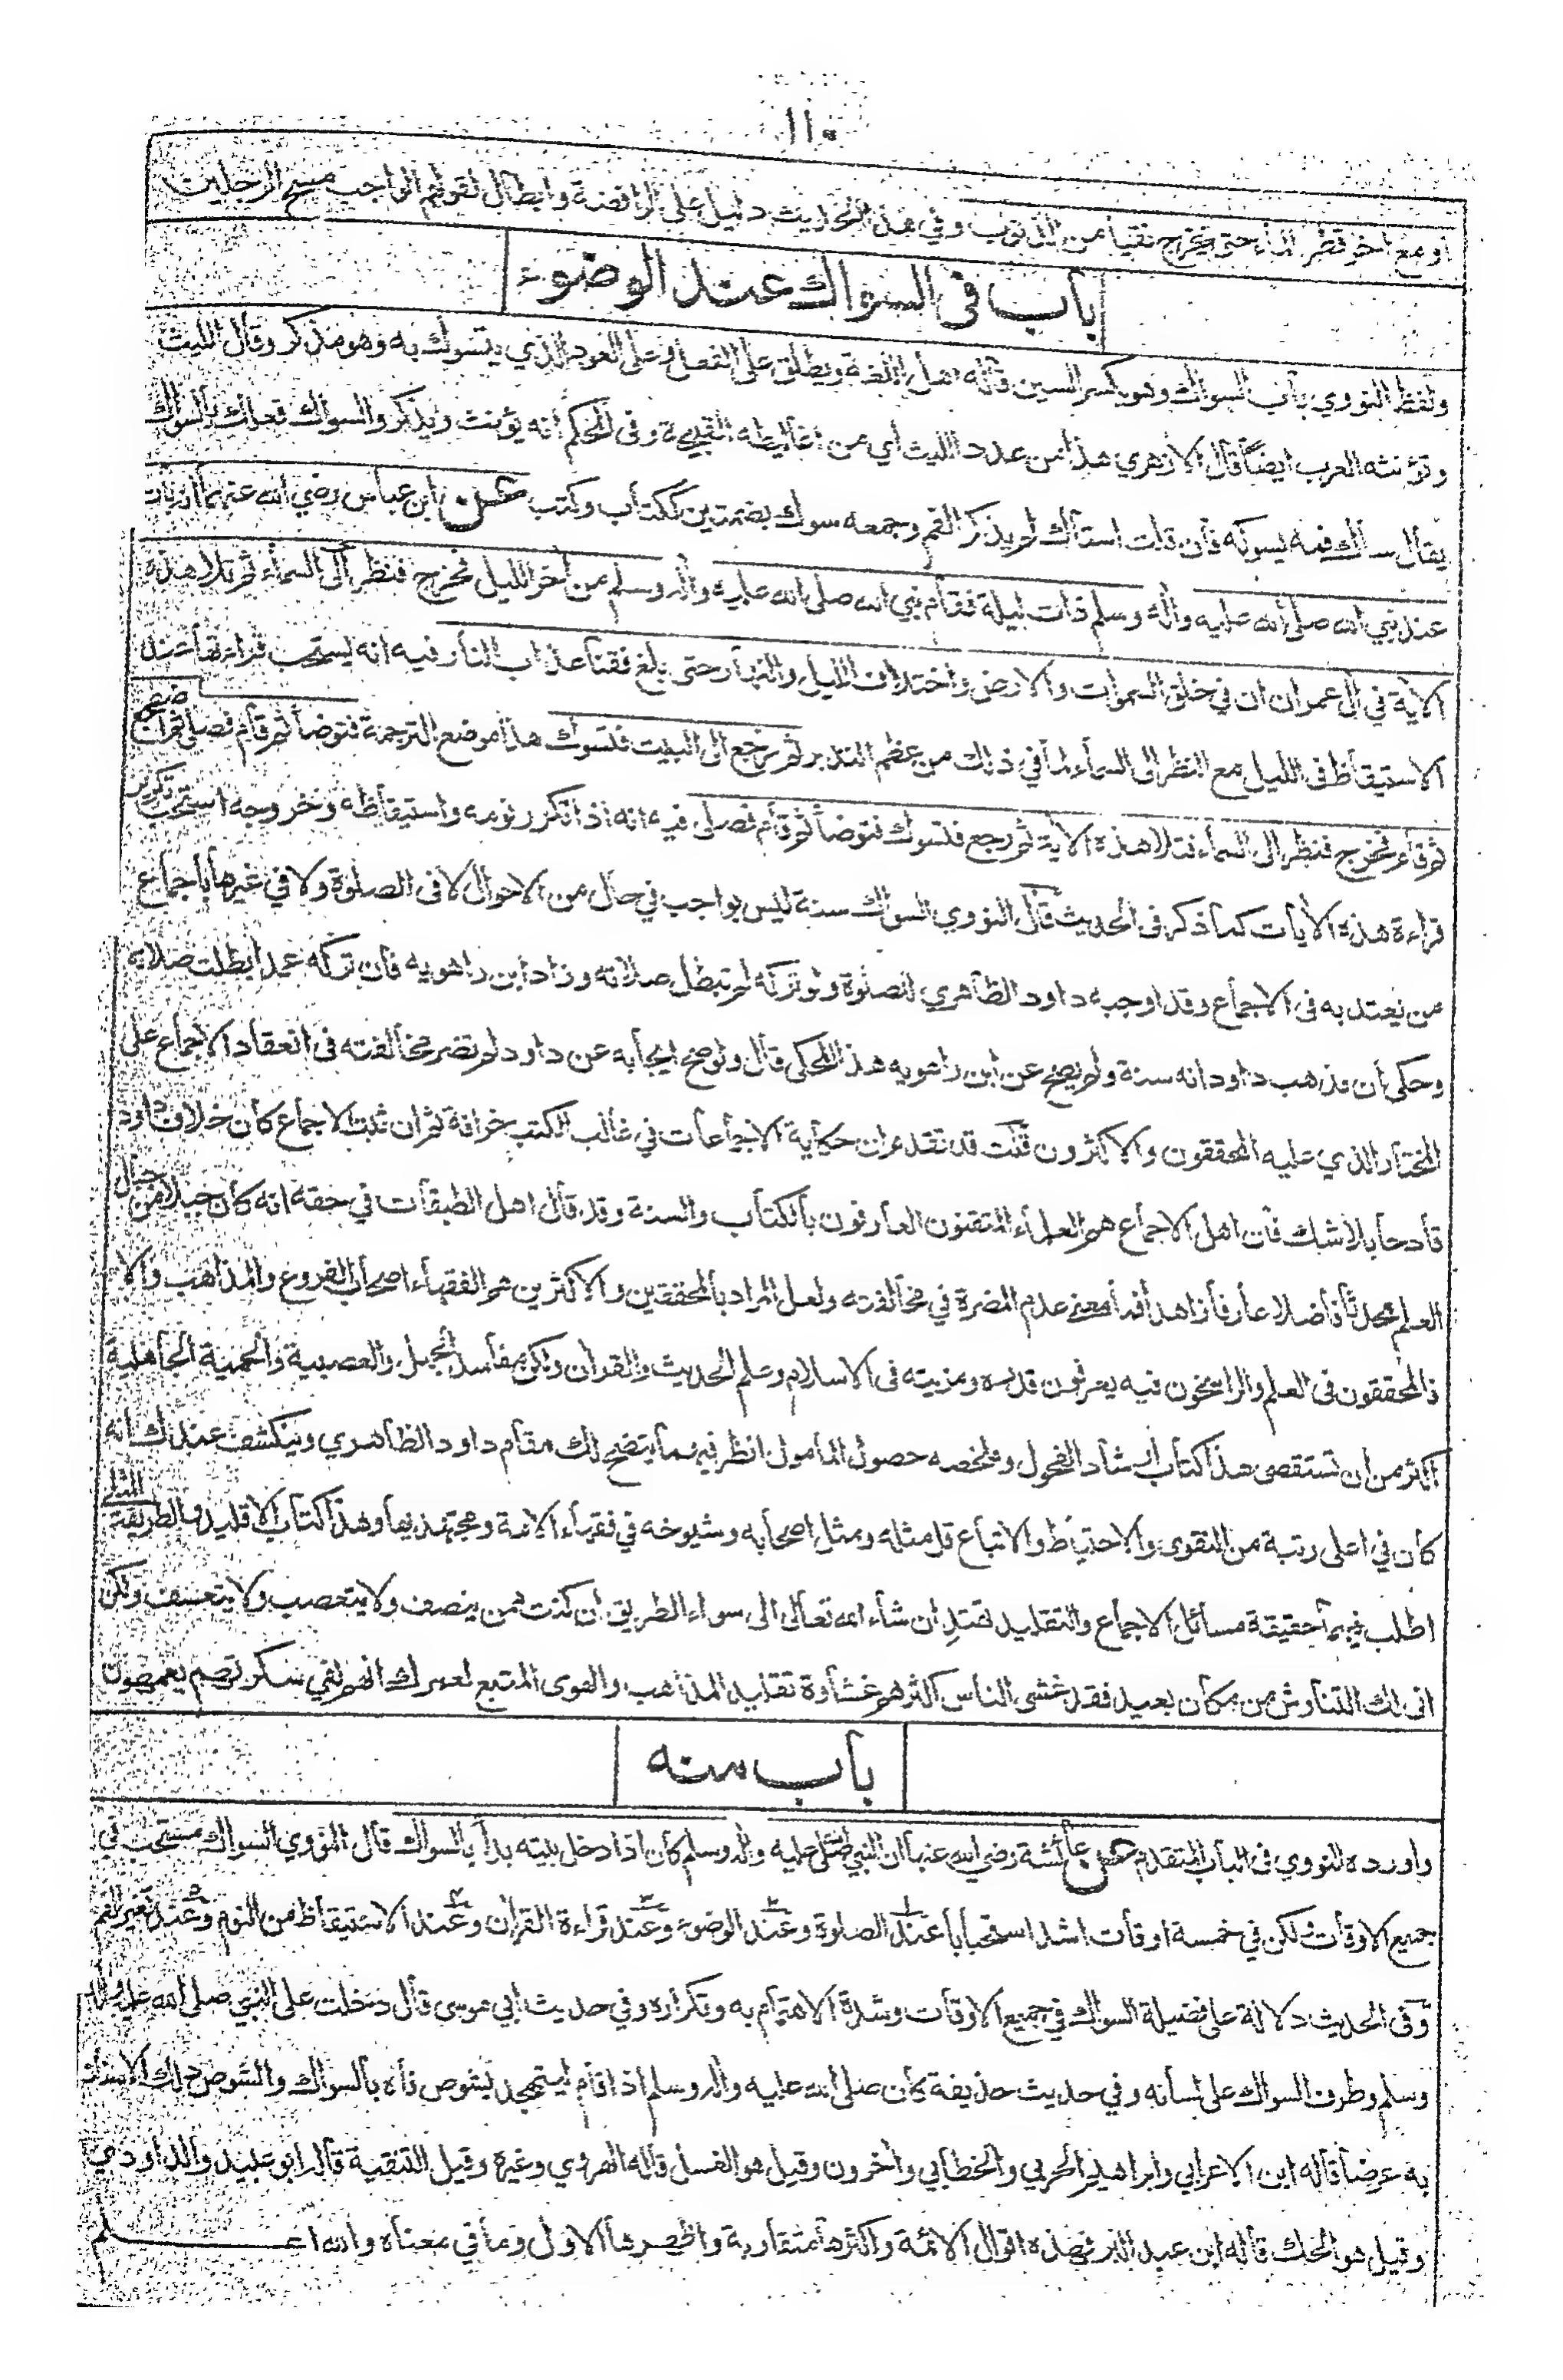 ١١٠
او مع اخر قطر الماء حتى يخرج نقيا من الذنوب وفي هذا الحديث دليل على الرافضة وابطال لقولهم الواجب مسح الرجلين
باب فى السواك عند الوضوء
ولفظ النووي باب السواك وهو بكسر السين قاله اهل اللغة ويطلق على الفعل وعلى العود الذي يتسوك به وهو مذكر وقال الليث
وتؤنثه العرب ايضا قال الازهري هذا من عدد الليث اي من اغاليطه القبيحة وفى المحكم انه يؤنث ويذكر والسواك فعلك بالسواك
يقال ساك فمه يسوكه فان قلت استاك لم يذكر الفم وجمعه سوك بضمتين ككتاب وكتب عن ابن عباس رضي الله عنهما انه بات
عند نبي الله صلى الله عليه واله وسلم ذات ليلة فقام نبي الله صلى الله عليه واله وسلم من اخر الليل فخرج فنظر الى السماء ثم تلا هذه
الاية في ال عمران ان في خلق السموات والارض واختلاف الليل والنهار حتى بلغ فقنا عذاب النار فيه انه يستحب قراءتها عند
الاستيقاظ فى الليل مع النظر الى السماء لما في ذلك من عظم التدبر ثم رجع الى البيت فتسوك هذا موضع الترجمة فتوضأ ثم قام فصلى ثم اضطجع
ثم قام فخرج فنظر الى السماء فتلا هذه الاية ثم رجع فتسوك فتوضأ ثم قام فصلى فيه انه اذا تكرر نومه واستيقاظه وخروجه استحب تكرير
قراءة هذه الايات كما ذكر فى الحديث قال النووي السواك سنة ليس بواجب في حال من الاحوال لا فى الصلوة ولا في غيرها باجماع
من يعتد به فى الاجماع وقد اوجبه داود الظاهري للصلوة ولو تركه لم تبطل صلاته وزاد ابن راهويه فان تركه عمدا بطلت صلاته
وحكى ان مذهب داود انه سنة ولم يصح عن ابن راهويه هذا المحكي قال ولو صح ايجابه عن داود لم تضر مخالفته فى انعقاد الاجماع على
المختار الذي عليه المحققون والاكثرون قلت قد تقدم ان حكاية الاجماعات في غالب الكتب خرافة ثم ان ثبت الاجماع كان خلاف داود
قادحا بلا شك فان اهل الاجماع هم العلماء المتقنون العارفون بالكتاب والسنة وقد قال اهل الطبقات في حقه انه كان جبلا من جبال
العلم محدثا فاضلا عارفا زاهدا فما معنى عدم المضرة في مخالفته ولعل المراد بالمحققين والاكثرين هم الفقهاء اصحاب الفروع والمذاهب والا
فالمحققون فى العلم والراسخون فيه يعرفون قدره ومزيته فى الاسلام وعلم الحديث والقران ولكن مفاسد الجهل والعصبية والحمية الجاهلية
اكثر من ان تستقصى هذا كتاب ارشاد الفحول وملخصه حصول المامول انظر فيهما يتضح لك مقام داود الظاهري وينكشف عندك انه
كان في اعلى رتبة من التقوى والاحتياط والاتباع قل مثله ومثل اصحابه وشيوخه في فقهاء الامة ومجتهديها وهذا كتاب الاقليد والطريقة المثلى
اطلب فيهما حقيقة مسائل الاجماع والتقليد تهتد ان شاء الله تعالى الى سواء الطريق ان كنت ممن ينصف ولا يتعصب ولا يتعسف ولكن
انى لك التناوش من مكان بعيد فقد غشى الناس اكثرهم غشاوة تقليد المذاهب والهوى المتبع لعمرك انهم لفي سكرتهم يعمهون
باب منه
واورده النووي فى الباب المتقدم عن عائشة رضي الله عنها ان النبي صلى الله عليه واله وسلم كان اذا دخل بيته بدأ بالسواك قال النووي السواك مستحب في
جميع الاوقات ولكن في خمسة اوقات اشد استحبابا عند الصلوة وعند الوضوء وعند قراءة القران وعند الاستيقاظ من النوم وعند تغير الفم
وفى الحديث دلالة على فضيلة السواك في جميع الاوقات وشدة الاهتمام به وتكراره وفي حديث ابي موسى قال دخلت على النبي صلى الله عليه واله
وسلم وطرف السواك على لسانه وفي حديث حذيفة كان صلى الله عليه واله وسلم اذا قام ليتهجد يشوص فاه بالسواك والشوص دلك الاسنان
به عرضا قاله ابن الاعرابي وابراهيم الحربي والخطابي واخرون وقيل هو الغسل قاله الهروي وغيره وقيل التنقية قاله ابو عبيد والداودي
وقيل هو الحك قاله ابن عبد البر فهذه اقوال الائمة واكثرها متقاربة واظهرها الاول وما في معناه والله اعلم